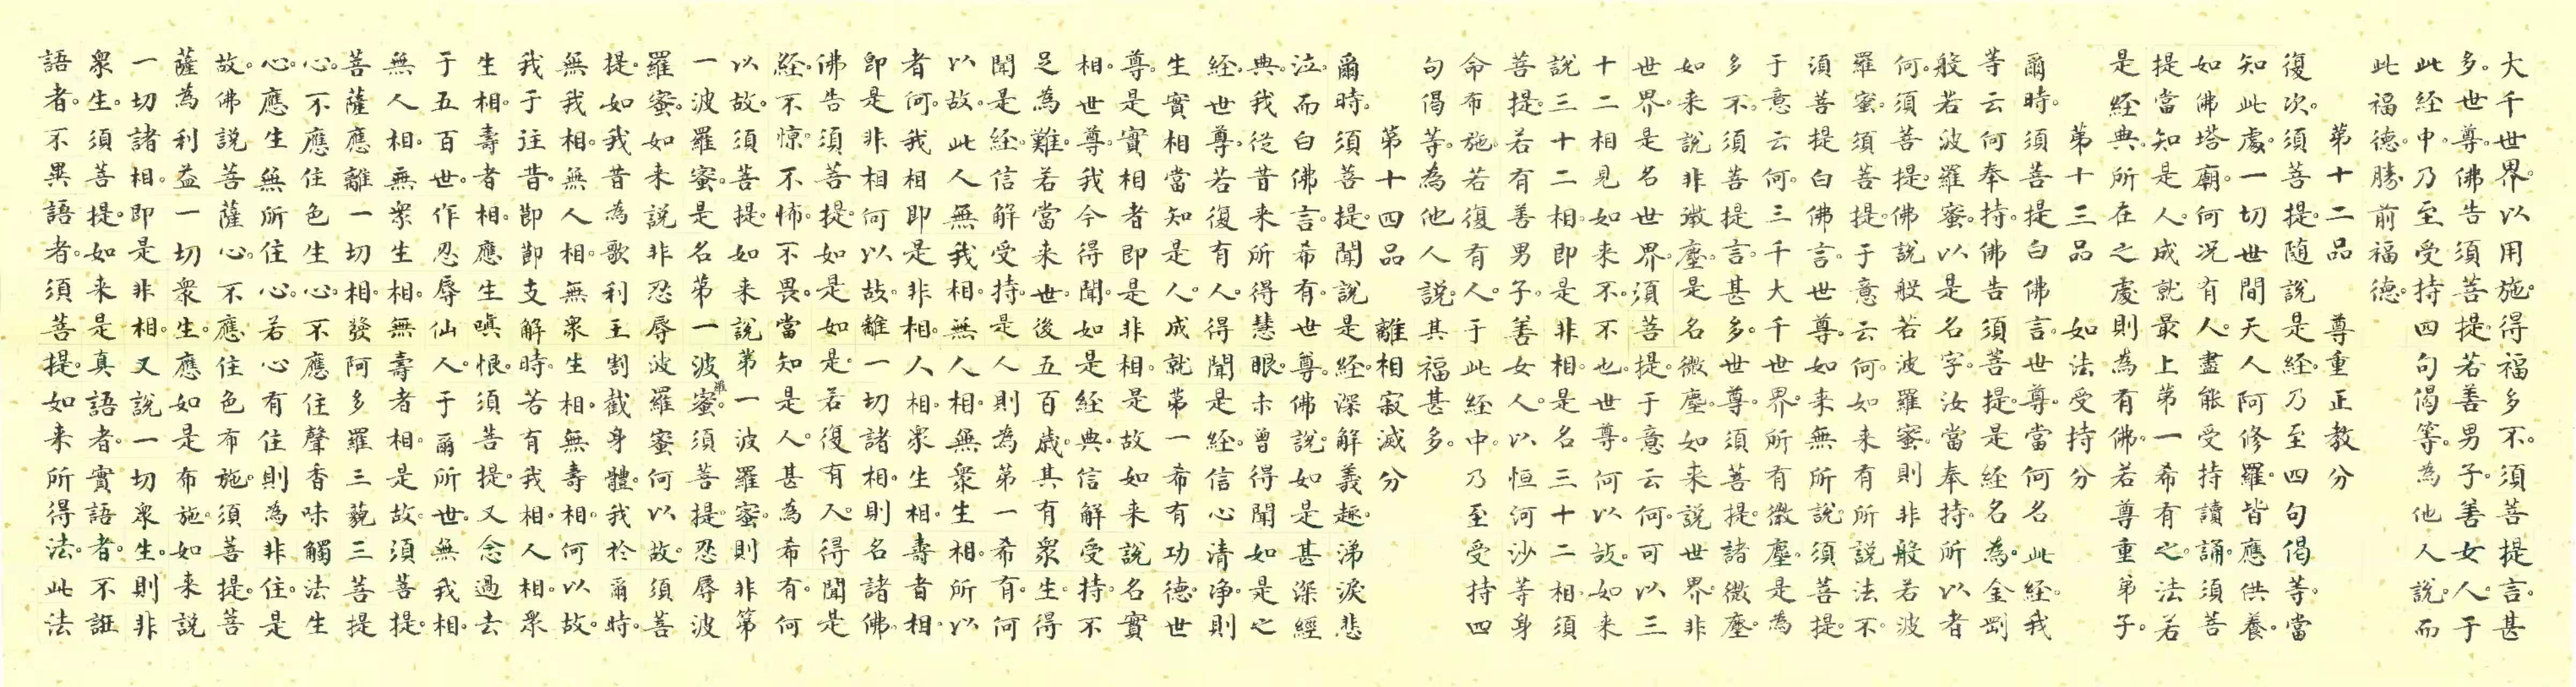 大千世界。以用施。得福多不。須菩提言。甚
多。世尊。佛告須菩提。若善男子。善女人。于
此經中。乃至受持四句偈等。為他人說。而
此福德。勝前福德。
第十二品 尊重正教分
復次。須菩提。随說是經。乃至四句偈等。當
知此處。一切世間天人阿修羅。皆應供養。
如佛塔廟。何况有人。盡能受持讀誦。須菩
提。當知是人。成就最上第一希有之法。若
是經典。所在之處則為有佛。若尊重弟子。
第十三品 如法受持分
爾時。須菩提白佛言。世尊。當何名此經。我
等云何奉持。佛告須菩提。是経名為。金剛
般若波羅蜜。以是名字。汝當奉持。所以者
何。須菩提。佛說般若波羅蜜。則非般若波
羅蜜。須菩提。于意云何。如来有所說法不。
須菩提白佛言。世尊。如来無所說。須菩提。
于意云何。三千大千世界。所有微塵。是為
多不。須菩提言。甚多。世尊。須菩提。諸微塵。
如来說非微塵。是名微塵。如来說世界非
世界。是名世界。須菩提。于意云何。可以三
十二相見如来不。不也。世尊。何以故。如来
說三十二相。即是非相。是名三十二相。須
菩提。若有善男子。善女人。以恒河沙等身
命布施。若復有人。于此経中。乃至受持四
句偈等。為他人說。其福甚多。
第十四品 離相寂滅分
爾時。須菩提。聞說是経。深解義趣。涕淚悲
泣。而白佛言。希有。世尊。佛說。如是甚深經
典。我從昔来所得慧眼。未曾得聞如是之
經。世尊。若復有人。得聞是経。信心清净。則
生實相。當知是人。成就第一希有功德。世
尊。是實相者即是非相。是故如来說名實
相。世尊。我今得聞。如是経典。信解受持。不
足為難。若當来世。後五百歳。其有衆生。得
聞是経。信解受持。是人則為第一希有。何
以故。此人無我相。無人相。無衆生相。所以
者何。我相即是非相。人相。衆生相。壽者相
即是非相。何以故。離一切諸相。則名諸佛。
佛告須菩提。如是如是。若復有人。得聞是
経。不惊不怖不畏。當知是人。甚為希有。何
以故。須菩提。如来說第一波羅蜜。則非第
一波羅蜜。是名第一波羅蜜。須菩提。忍辱波
羅蜜。如来說非忍辱波羅蜜。何以故。須菩
提。如我昔為歌利王割截身體。我於爾時。
無我相。無人相。無衆生相。無壽相。何以故。
我于往昔。節節支解時。若有我相。人相。衆
生相。壽者相。應生嗔恨。須菩提。又念過去
于五百世。作忍辱仙人。于爾所世。無我相。
無人相。無衆生相。無壽者相。是故。須菩提。
菩薩應離一切相。發阿多羅三藐三菩提
心。不應住色生心。不應住聲香味觸法生
心。應生無所住心。若心有住則為非住。是
故。佛說菩薩心。不應住色布施。須菩提。菩
薩為利益一切衆生。應如是布施。如来說
一切諸相。即是非相。又說一切衆生。則非
衆生。須菩提。如来是真語者。實語者。不誑
語者。不異語者。須菩提。如来所得法。此法